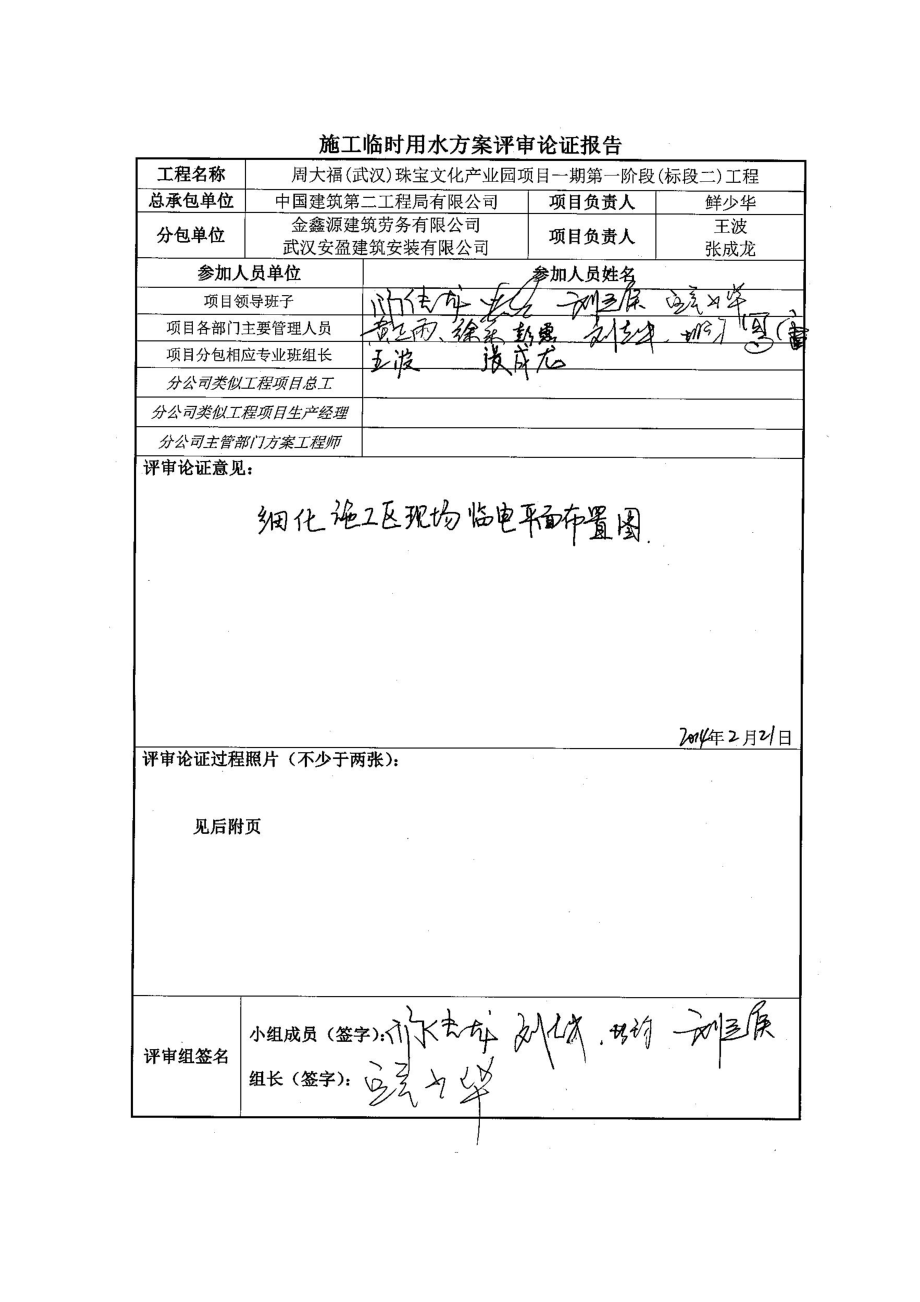 施工临时用水方案评审论证报告
工程名称 周大福(武汉)珠宝文化产业园项目一期第一阶段(标段二)工程
总承包单位 中国建筑第二工程局有限公司 项目负责人 鲜少华
分包单位 金鑫源建筑劳务有限公司 项目负责人 王波
武汉安盈建筑安装有限公司 张成龙
参加人员单位 参加人员姓名
项目领导班子
项目各部门主要管理人员 彭露
项目分包相应专业班组长 王波 张成龙
分公司类似工程项目总工
分公司类似工程项目生产经理
分公司主管部门方案工程师
评审论证意见：
细化施工区现场临电平面布置图.
2014年2月21日
评审论证过程照片（不少于两张）：
见后附页
评审组签名 小组成员（签字）：
组长（签字）：